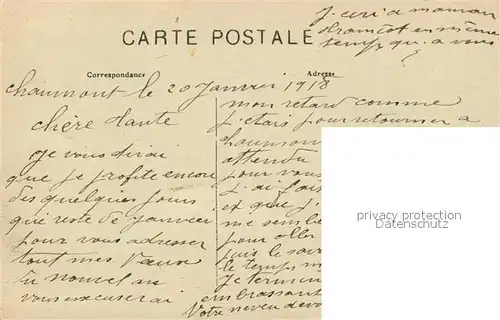 J. ecri a maman
temps qu. a vous
CARTE POSTALE
Correspondance
Adresse
chaumont le 20 Janvier 1918
chère tante
Je vous dirai
que je profite encore
des quelques jours
qui reste de Janvier
pour vous adresser
tout mes Vœux
du nouvel an
vous excuserai
mon retard comme
j'etais pour retourner a
attendu
pour vous
j'ai fais
et que j'
me semble
pour aller
puis le soir
le temps m
je termin
embrassant
Votre neveu devo
privacy protection
Datenschutz